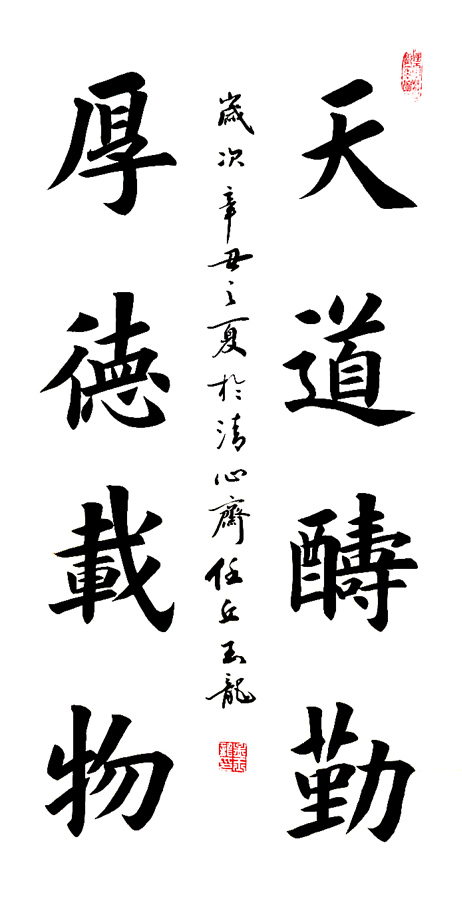 天道醻勤
厚德載物
歲次辛丑之夏於清心齋任丘玉龍